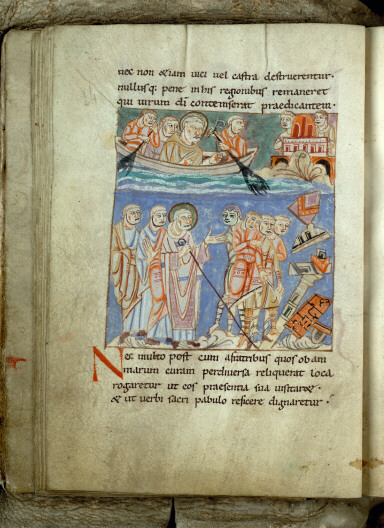 nec non &iam uici uel castra destruerentur·
nullusq; pene in his regionibus remaneret
qui uirum dī contempserat praedicantem·
Nec multo post cum a fratribus quos ob am
marum curam per diuersa reliquerat loca
rogaretur ut eos praesentia sua uisitar&·
& ut uerbi sacri pabulo reficere dignaretur·